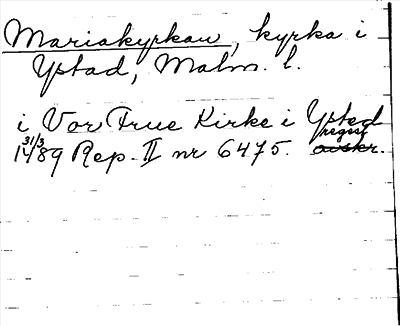 Mariakyrkan, kyrka i
Ystad, Malm. l.
i Vor Frue Kirke i Ysted
31/3 1489 Rep. II nr 6475. regest avskr.